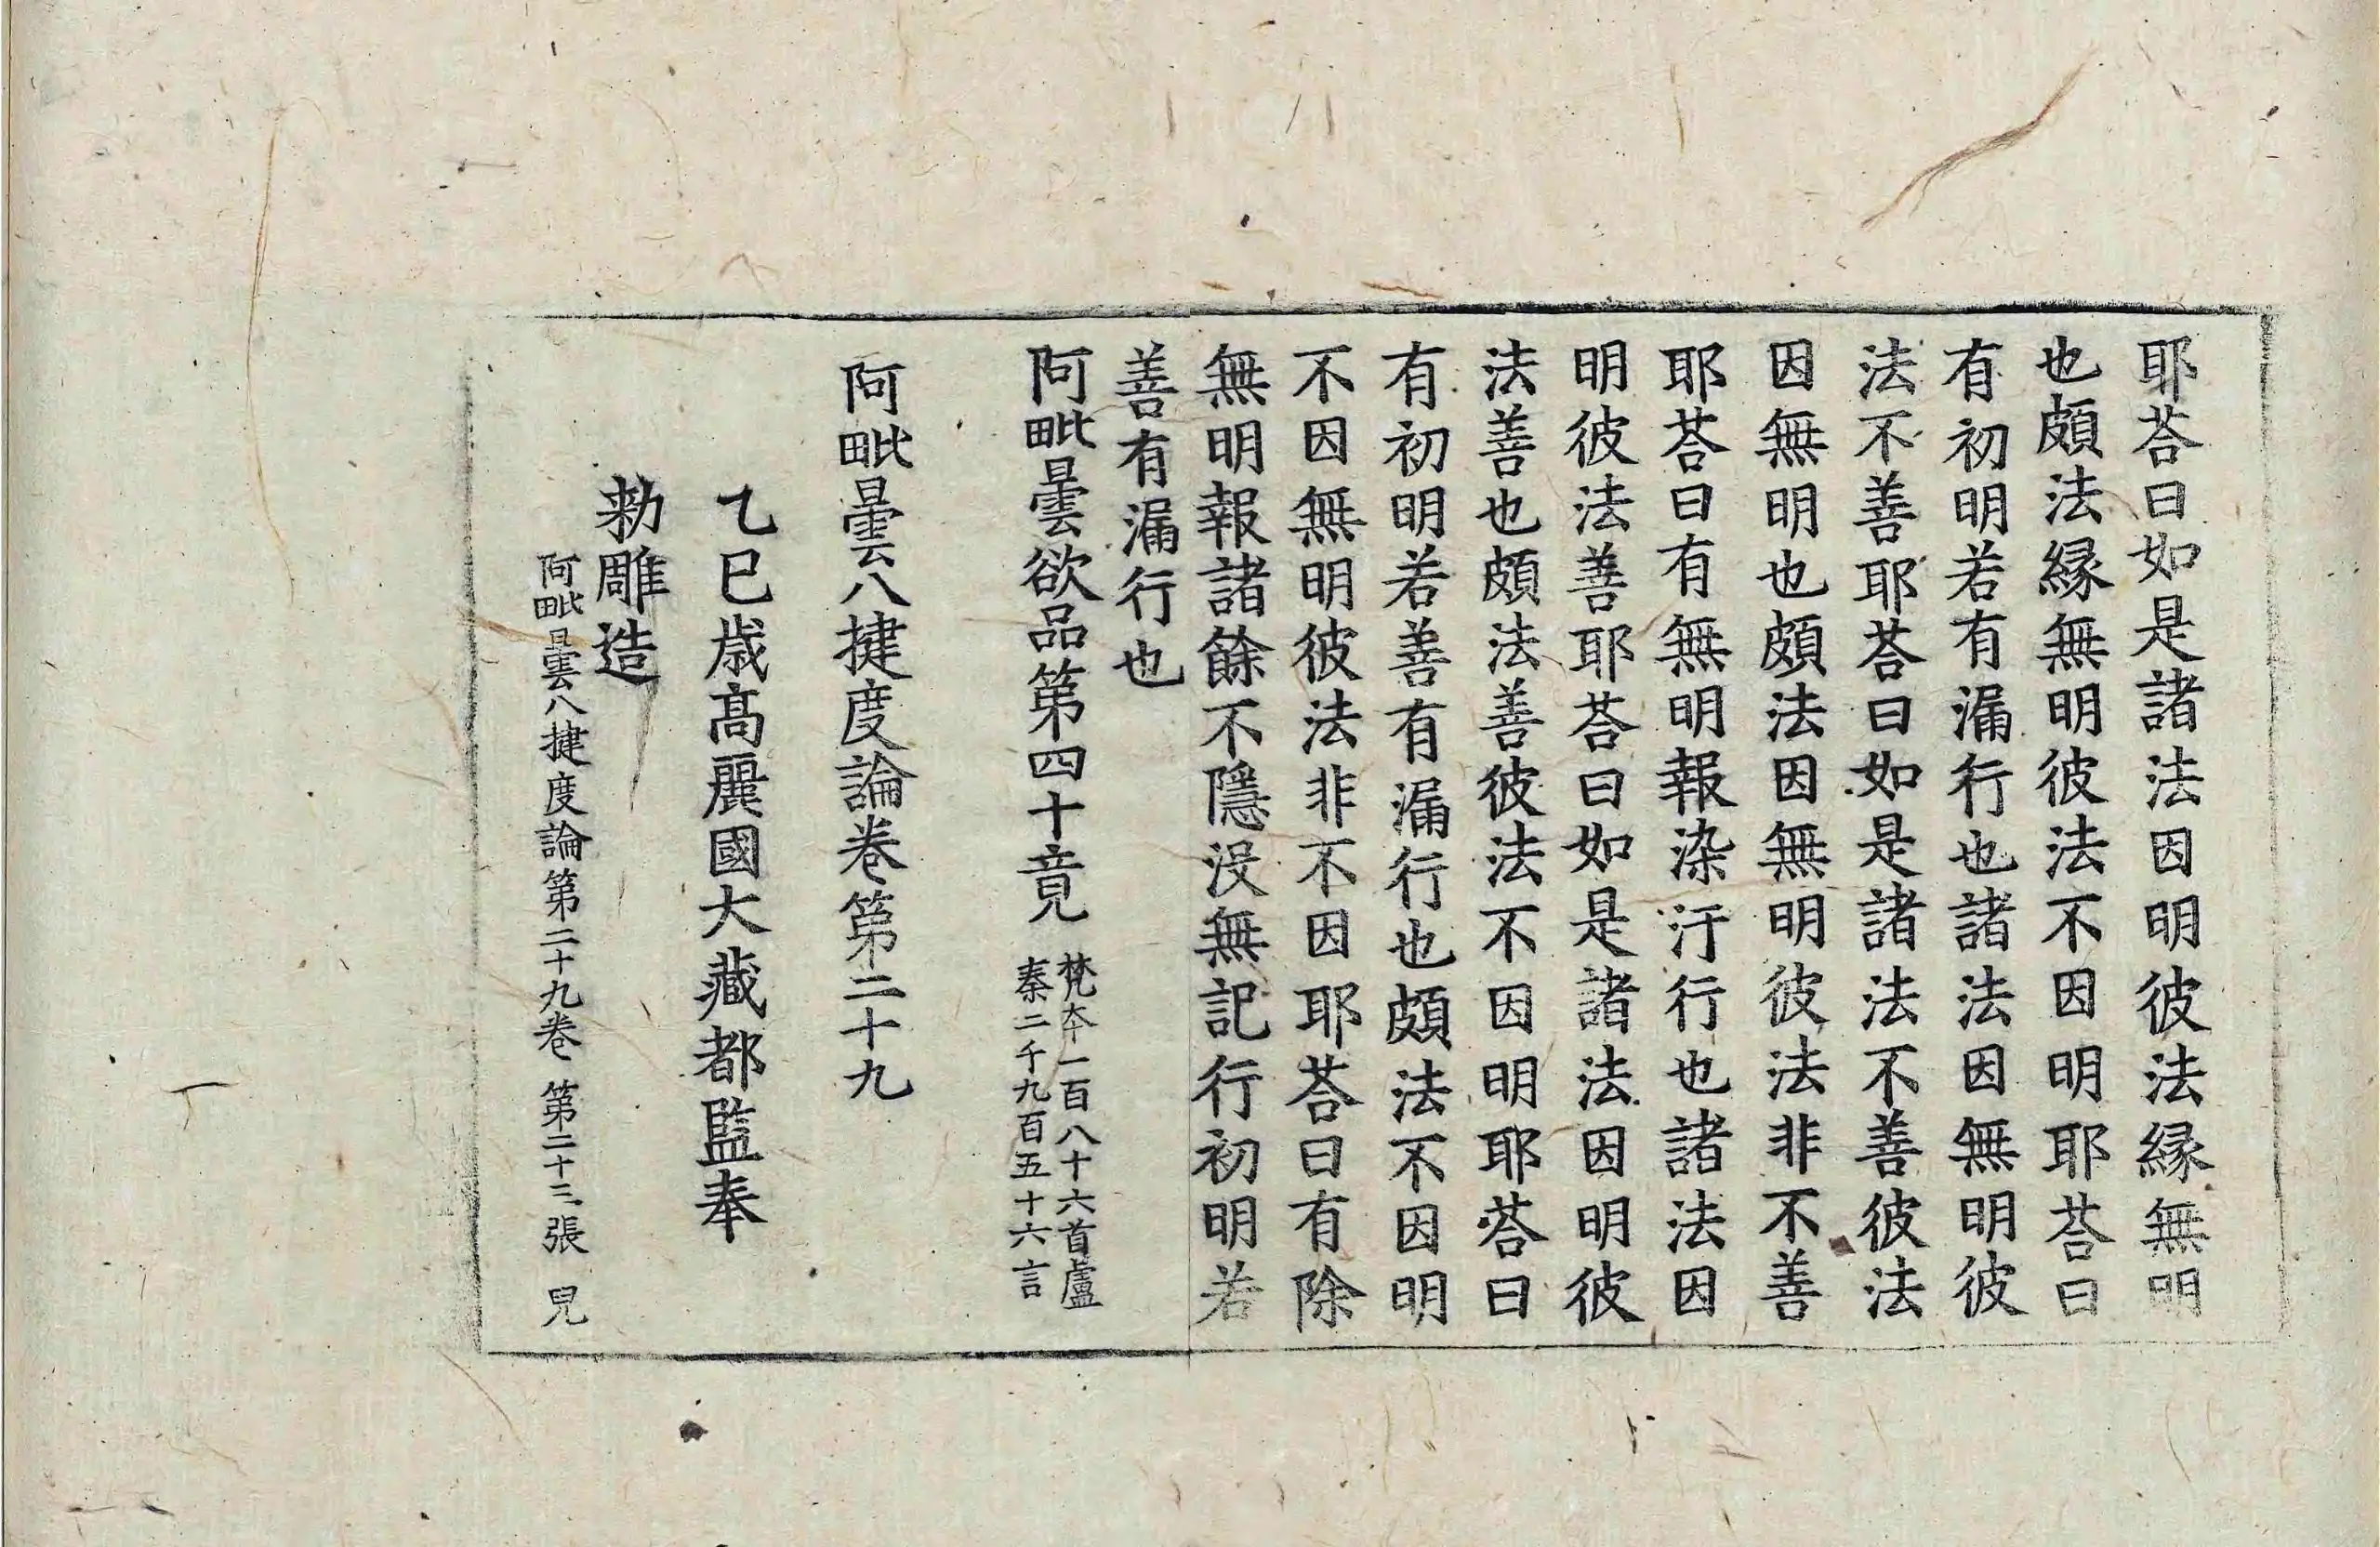 耶荅曰如是諸法因明彼法縁無明
也頗法縁無明彼法不因明耶荅曰
有初明若有漏行也諸法因無明彼
法不善耶荅曰如是諸法不善彼法
因無明也頗法因無明彼法非不善
耶荅曰有無明報染汙行也諸法因
明彼法善耶荅曰如是諸法因明彼
法善也頗法善彼法不因明耶荅曰
有初明若善有漏行也頗法不因明
不因無明彼法非不因耶荅曰有除
無明報諸餘不隱没無記行初明若
善有漏行也
阿毗曇欲品第四十竟
梵本一百八十六首盧
秦二千九百五十六言
阿毗曇八揵度論卷第二十九
乙巳歳髙麗國大藏都監奉
勅雕造
阿毗曇八揵度論第二十九卷 第二十三張 兒